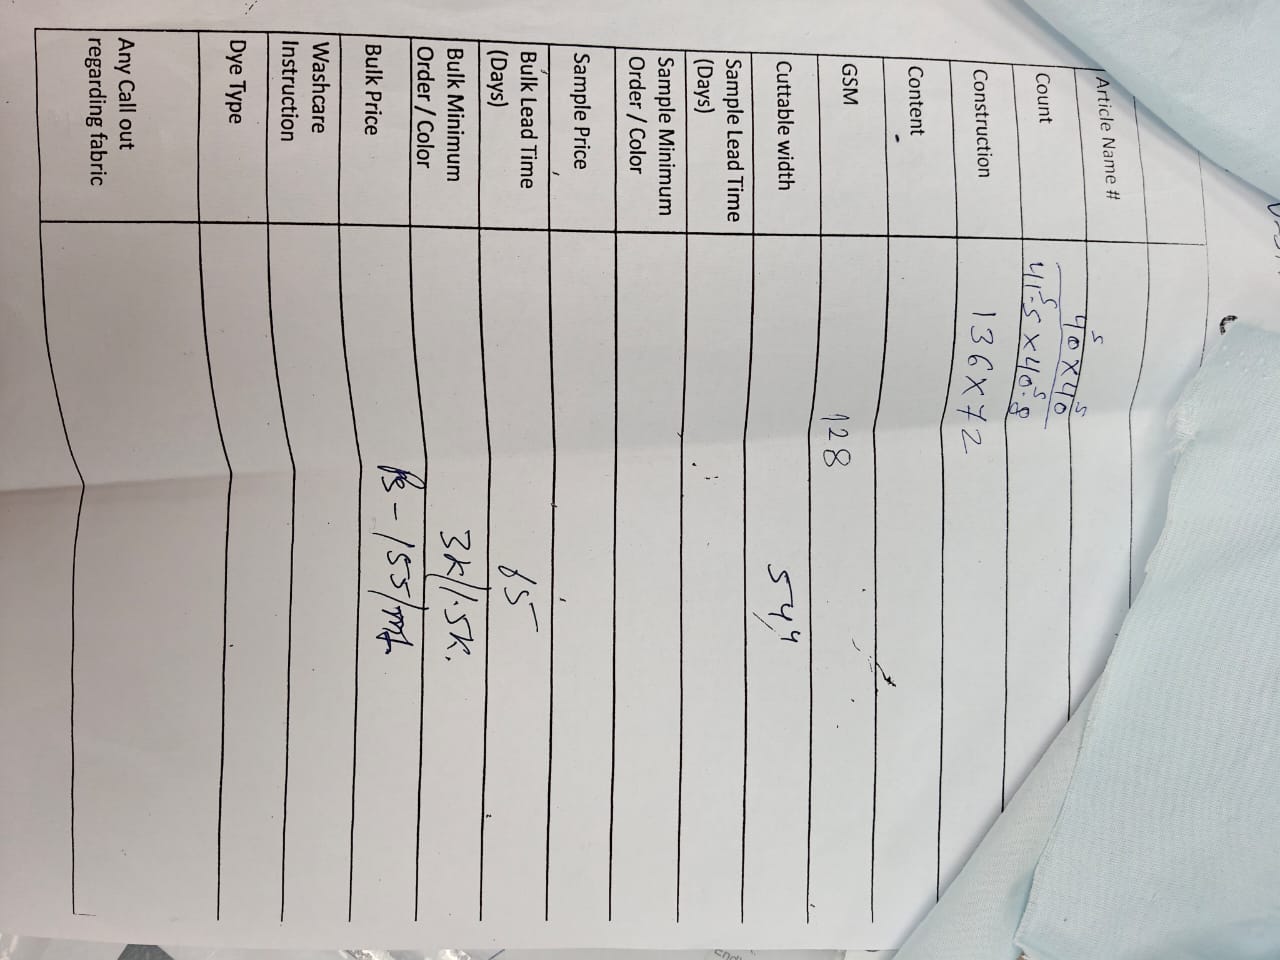 Article Name #
Count 40ˢ x 40ˢ
41.5ˢ x 40.8ˢ
Construction 136 x 72
Content
GSM 128
Cuttable width 54"
Sample Lead Time
(Days)
Sample Minimum
Order / Color
Sample Price
Bulk Lead Time
(Days)
Bulk Minimum 3K/1.5K.
Order / Color
Bulk Price Rs - 155/mt.
Washcare
Instruction
Dye Type
Any Call out
regarding fabric